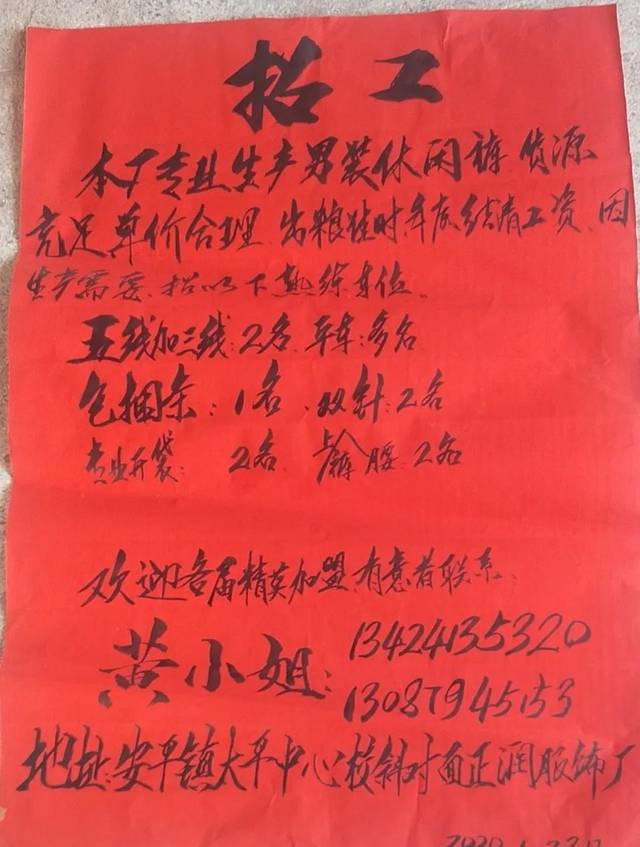 招工
本厂专业生产男装休闲裤.货源
充足.单价合理.出粮准时.年底结清工资.因
生产需要.招以下熟练车位.
五线加三线:2名.平车:多名
包捆条:1名.双针:2名
专业开袋:2名.上裤腰:2名
欢迎各届精英加盟.有意者联系:
黄小姐:13424135320
13087945153
地址:安平镇大平中心校斜对面正润服饰厂